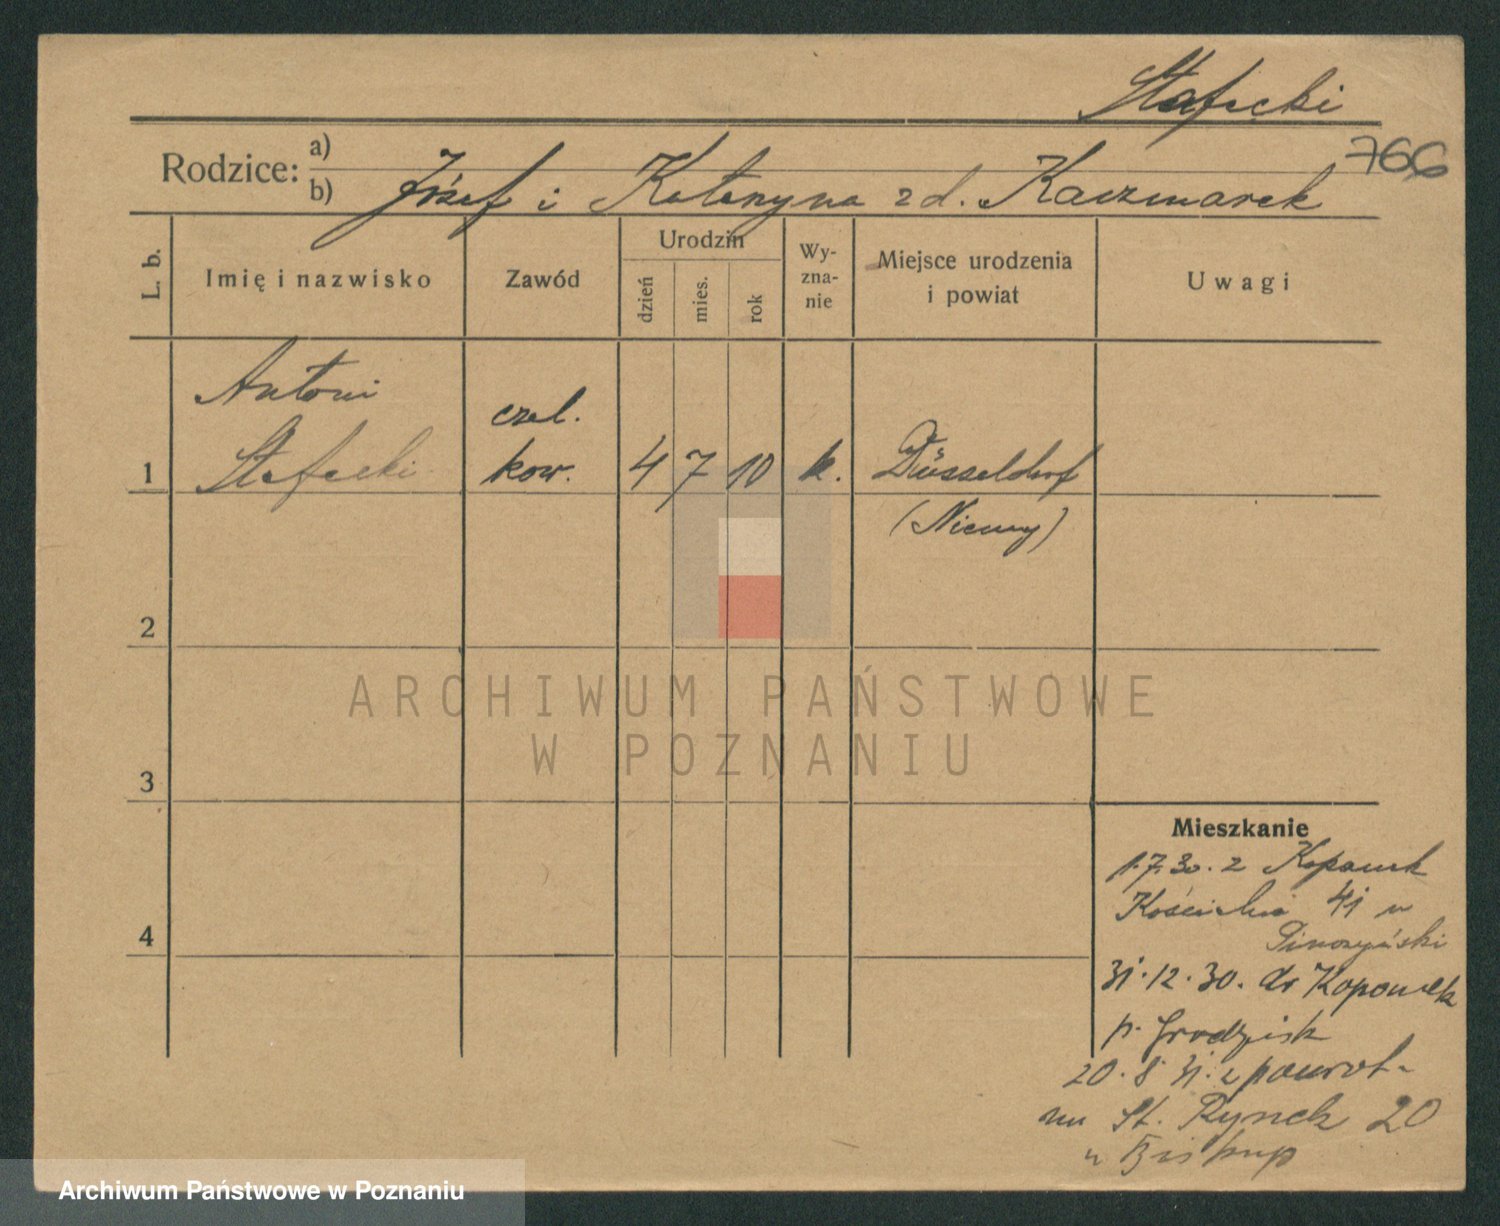 Stafecki
766
Rodzice: a)
b) Józef i Katarzyna z d. Kaczmarek
L. b.
Imię i nazwisko
Zawód
Urodzin
dzień
mies.
rok
Wy-
zna-
nie
Miejsce urodzenia
i powiat
Uwagi
Antoni
czel.
1 Stafecki kow. 4 7 10 k. Düsseldorf
(Niemcy)
2
3
4
Mieszkanie
1.7.30. z
41 u
31.12.30. do
p. Grodzisk
20.8 31. z powrot.
St. Rynek 20
u Biskup
ARCHIWUM PAŃSTWOWE
W POZNANIU
Archiwum Państwowe w Poznaniu